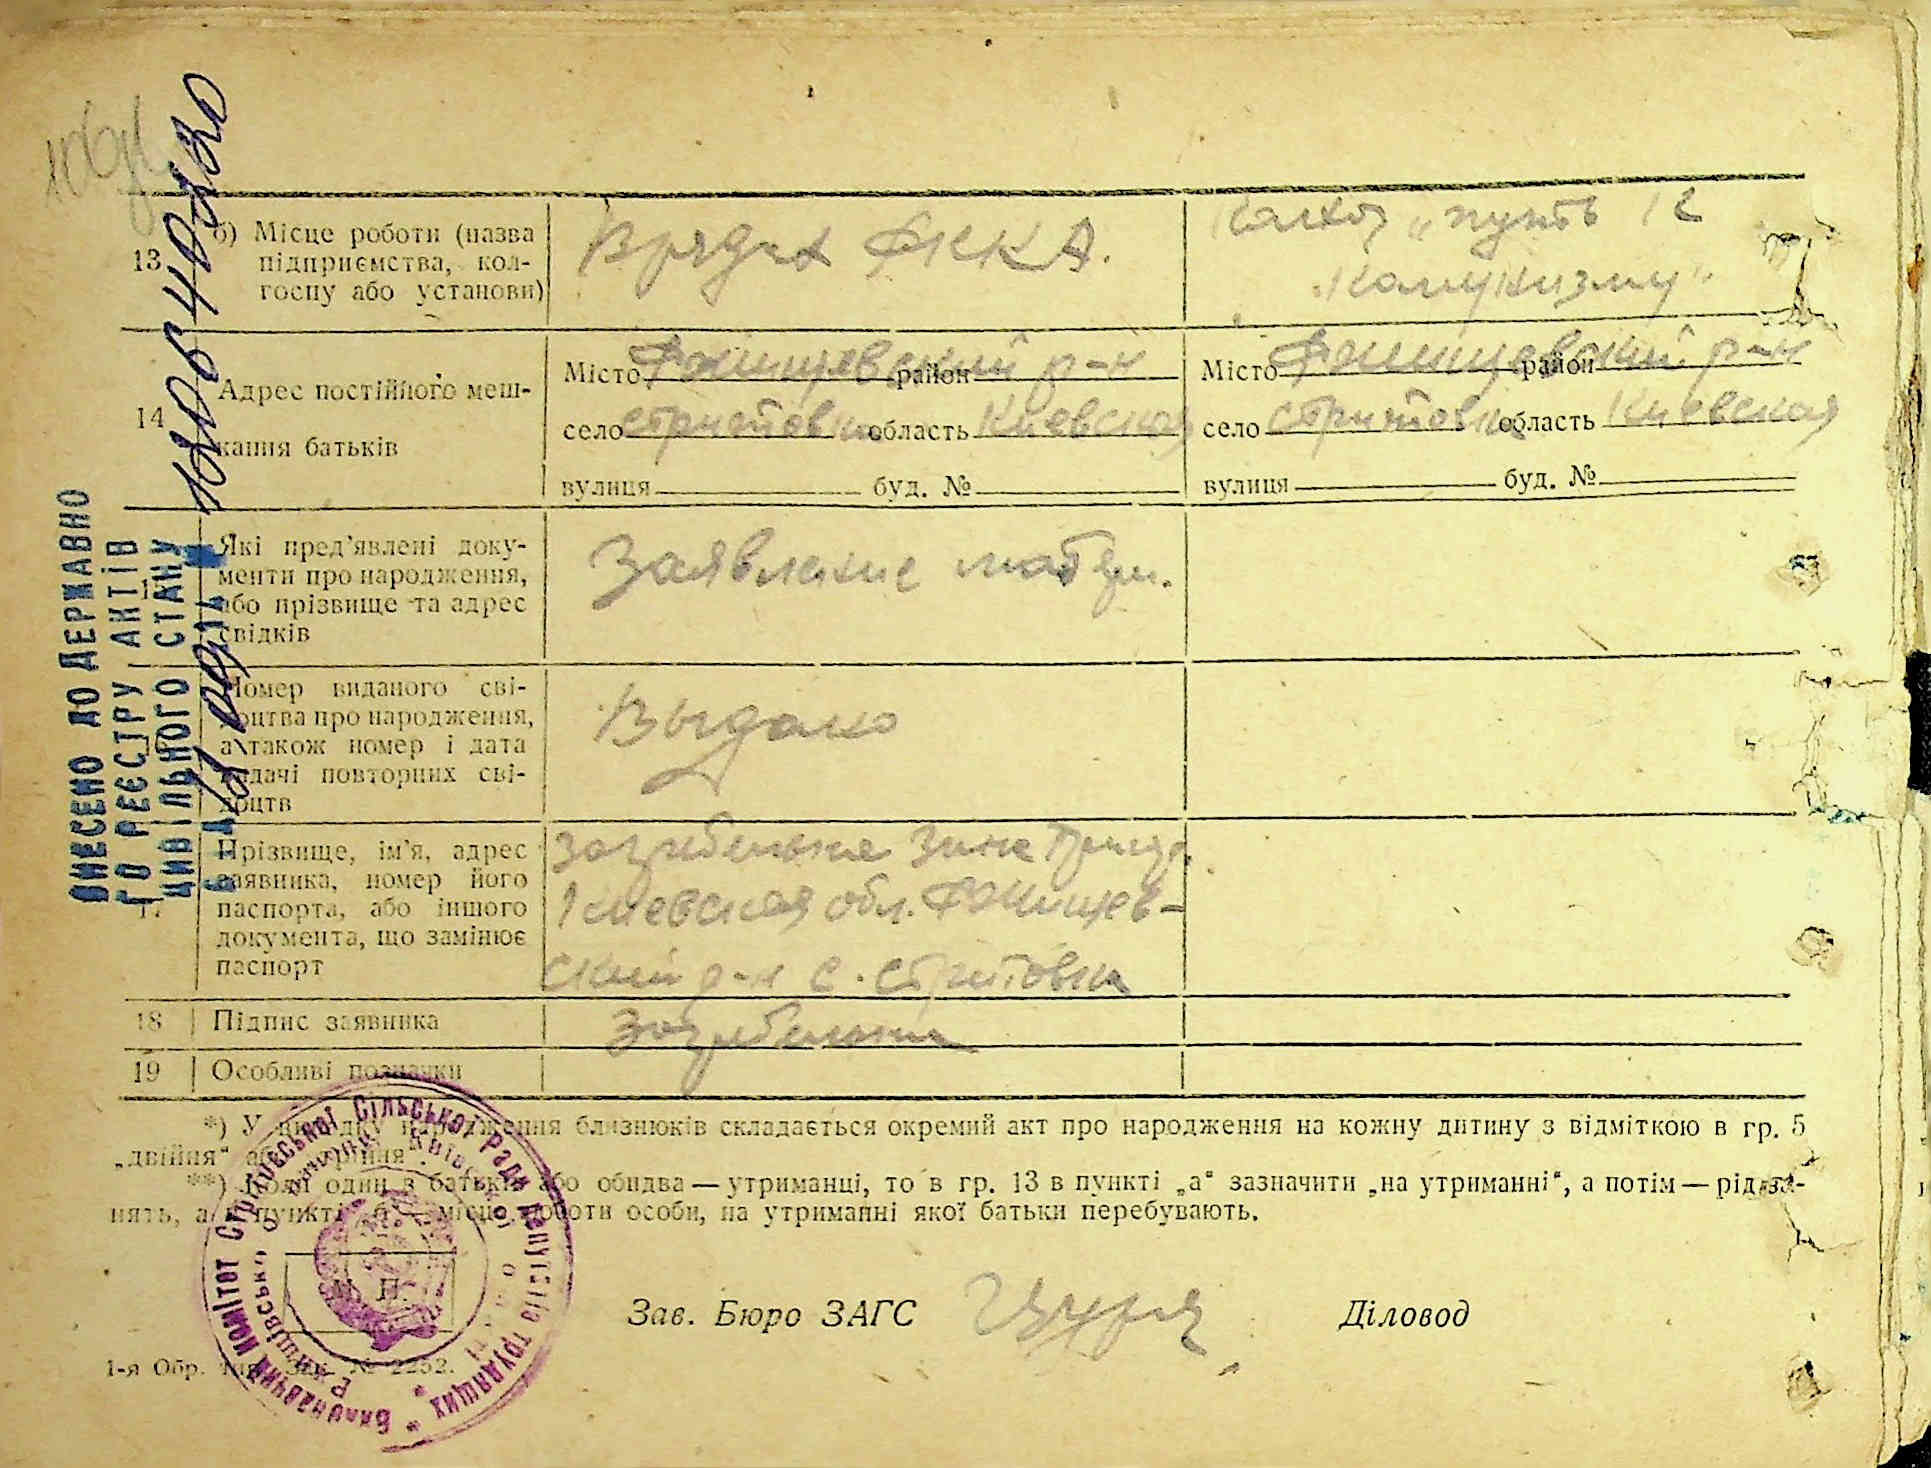 13 б) Місце роботи (назва
підприємства, кол-
госпу або установи)
В рядах РККА.
колхоз „путь к
комунизму"
14 Адрес постійного меш-
кання батьків
Місто район
Ржищевский р-н
село Стритовка область Киевская
вулиця буд. №
Місто район
Ржищевский р-н
село Стритовка область Киевская
вулиця буд. №
Які пред'явлені доку-
менти про народження,
або прізвище та адрес
свідків
Заявление матери.
Номер виданого сві-
доцтва про народження,
а також номер і дата
видачі повторних сві-
доцтв
Выдано
17 Прізвище, ім'я, адрес
заявника, номер його
паспорта, або іншого
документа, що замінює
паспорт
Зина
Киевская обл. Ржищев-
ский р-н с. Стритовка
18 Підпис заявника
19 Особливі позначки
*) У випадку народження близнюків складається окремий акт про народження на кожну дитину з відміткою в гр. 5
„двійня" або „трійня".
**) Коли один з батьків або обидва — утриманці, то в гр. 13 в пункті „а" зазначити „на утриманні", а потім — рід за-
нять, а в пункті „б" — місце роботи особи, на утриманні якої батьки перебувають.
М. П.
Зав. Бюро ЗАГС
Діловод
1-я Обр. Тип. Зак. № 2252.
ВНЕСЕНО ДО ДЕРЖАВНО
ГО РЕЄСТРУ АКТІВ
ЦИВІЛЬНОГО СТАНУ
Виконавчий Комітет Стритівської Сільської Ради депутатів трудящих